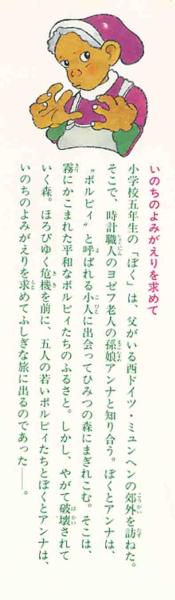 いのちのよみがえりを求めて
小学校五年生の「ぼく」は、父がいる西ドイツ・ミュンヘンの郊外を訪ねた。
そこで、時計職人のヨゼフ老人の孫娘アンナと知り合う。ぼくとアンナは、
〝ポルピィ〟と呼ばれる小人に出会ってひみつの森にまぎれこむ。そこは、
霧にかこまれた平和なポルピィたちのふるさと。しかし、やがて破壊されて
いく森。ほろびゆく危機を前に、五人の若いポルピィたちとぼくとアンナは、
いのちのよみがえりを求めてふしぎな旅に出るのであった──。